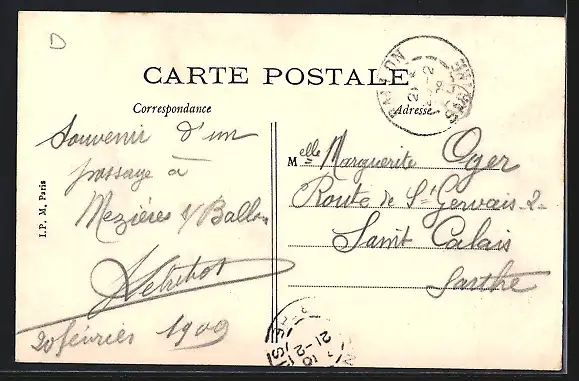 D
CARTE POSTALE
Correspondance
Adresse
I.P. M. Paris
Souvenir d'un
passage à
Mezières s/Ballon
20 février 1909
Melle Marguerite Oger
Route de St Gervais-2-
Saint Calais
Sarthe
BALLON
SARTHE
21-2
21-2